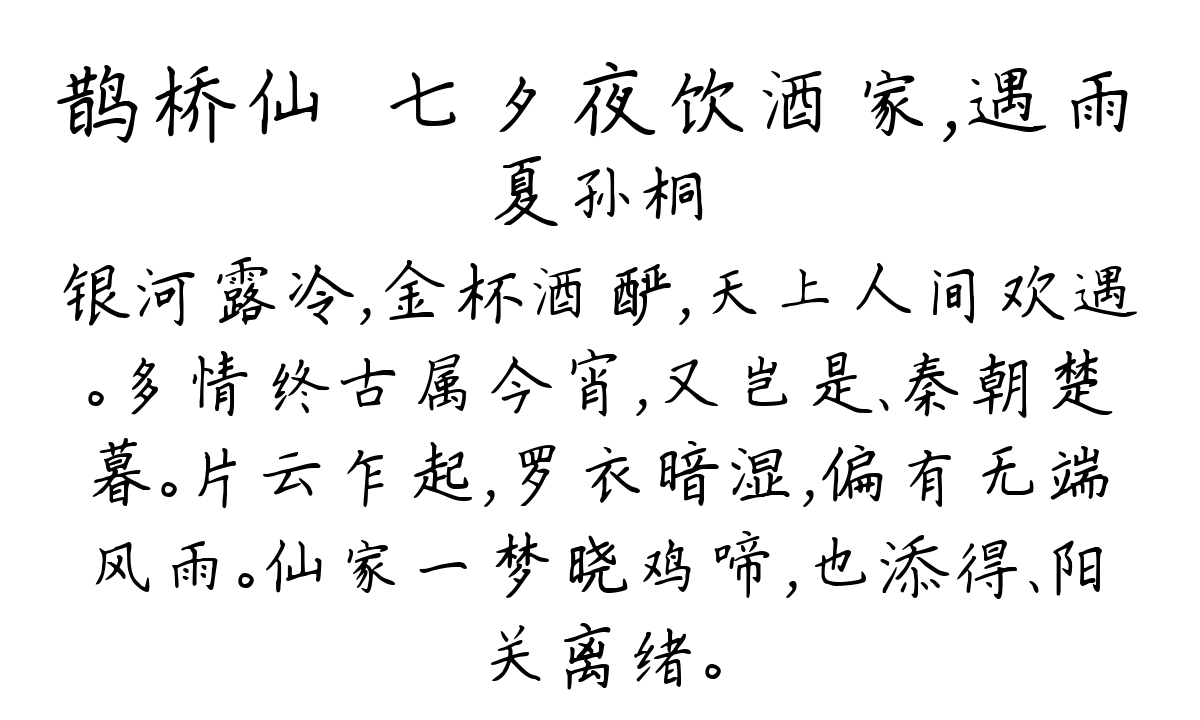 鹊桥仙 七夕夜饮酒家,遇雨
夏孙桐
银河露冷,金杯酒酽,天上人间欢遇
。多情终古属今宵,又岂是、秦朝楚
暮。片云乍起,罗衣暗湿,偏有无端
风雨。仙家一梦晓鸡啼,也添得、阳
关离绪。